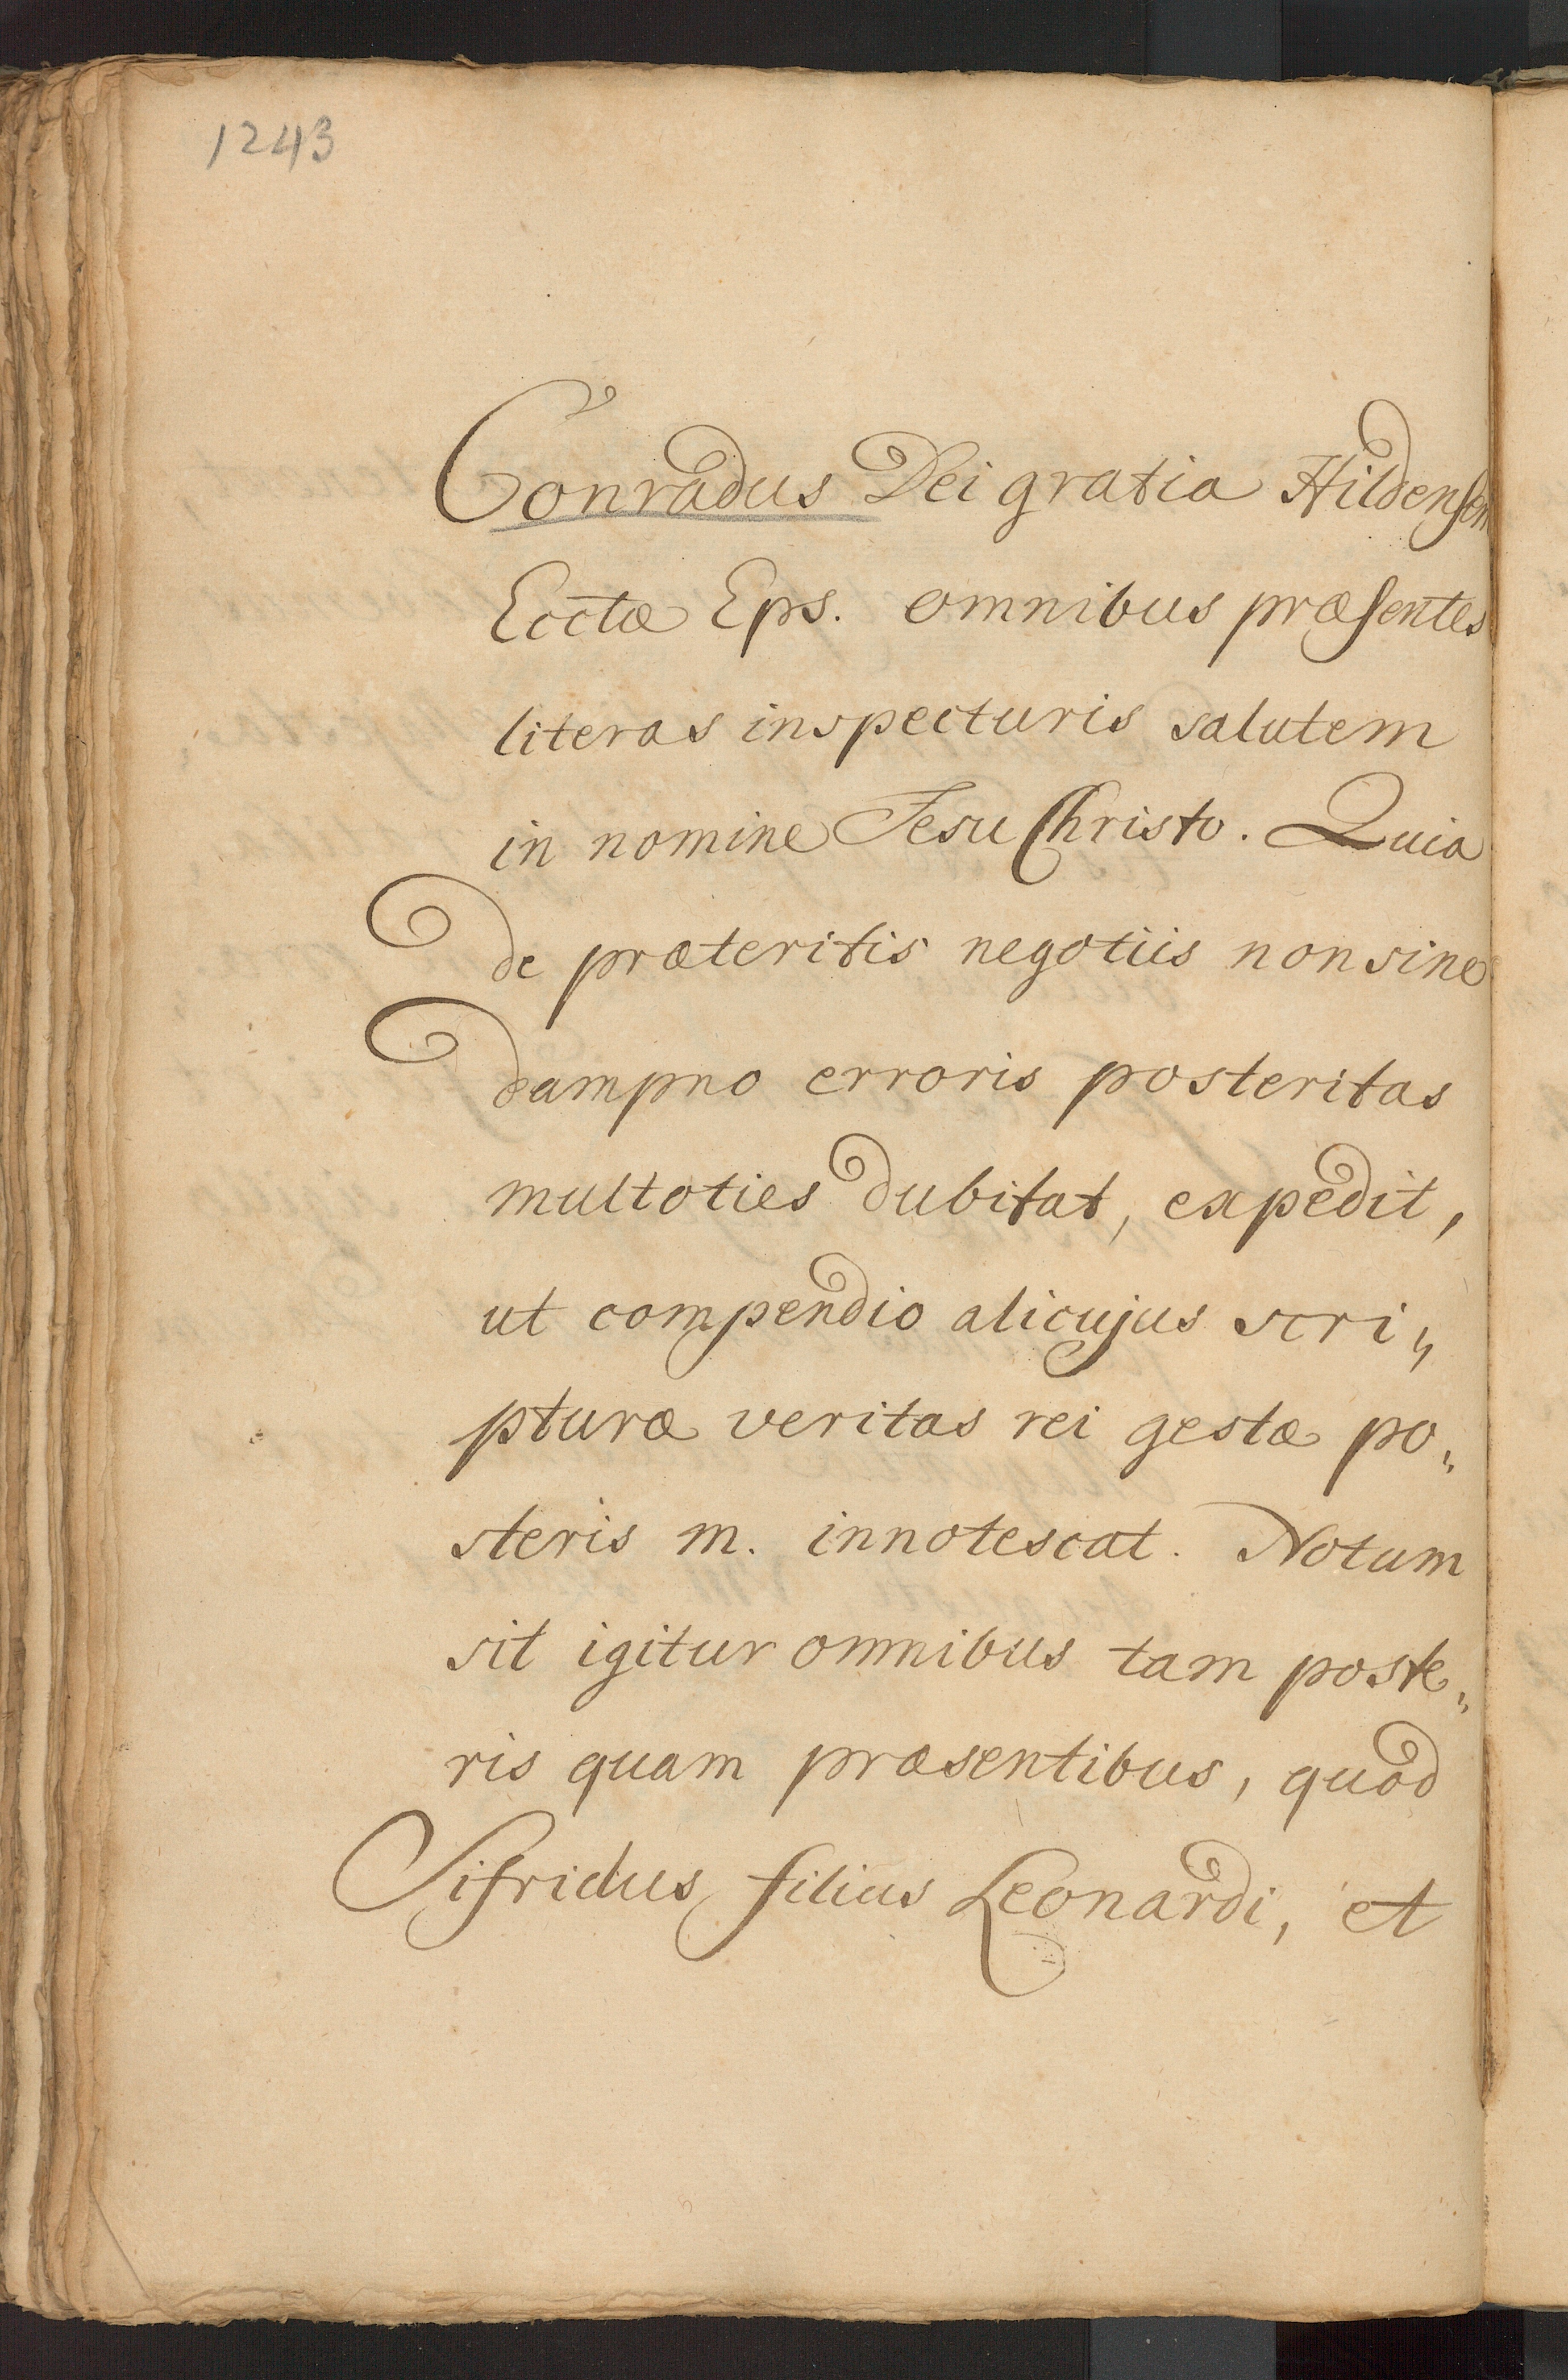 1243
Conradus Dei gratia Hildensem
Ecctæ Eps. omnibus præsentes
literas inspecturis salutem
in nomine Jesu Christo. Quia
de præteritis negotiis non sine
dampno erroris posteritas
multoties dubitat, expedit,
ut compendio alicujus scri„
pturæ veritas rei gestæ po„
steris m. innotescat. Notum
sit igitur omnibus tam poste„
ris quam præsentibus, quod
Sifridus filius Leonardi, et